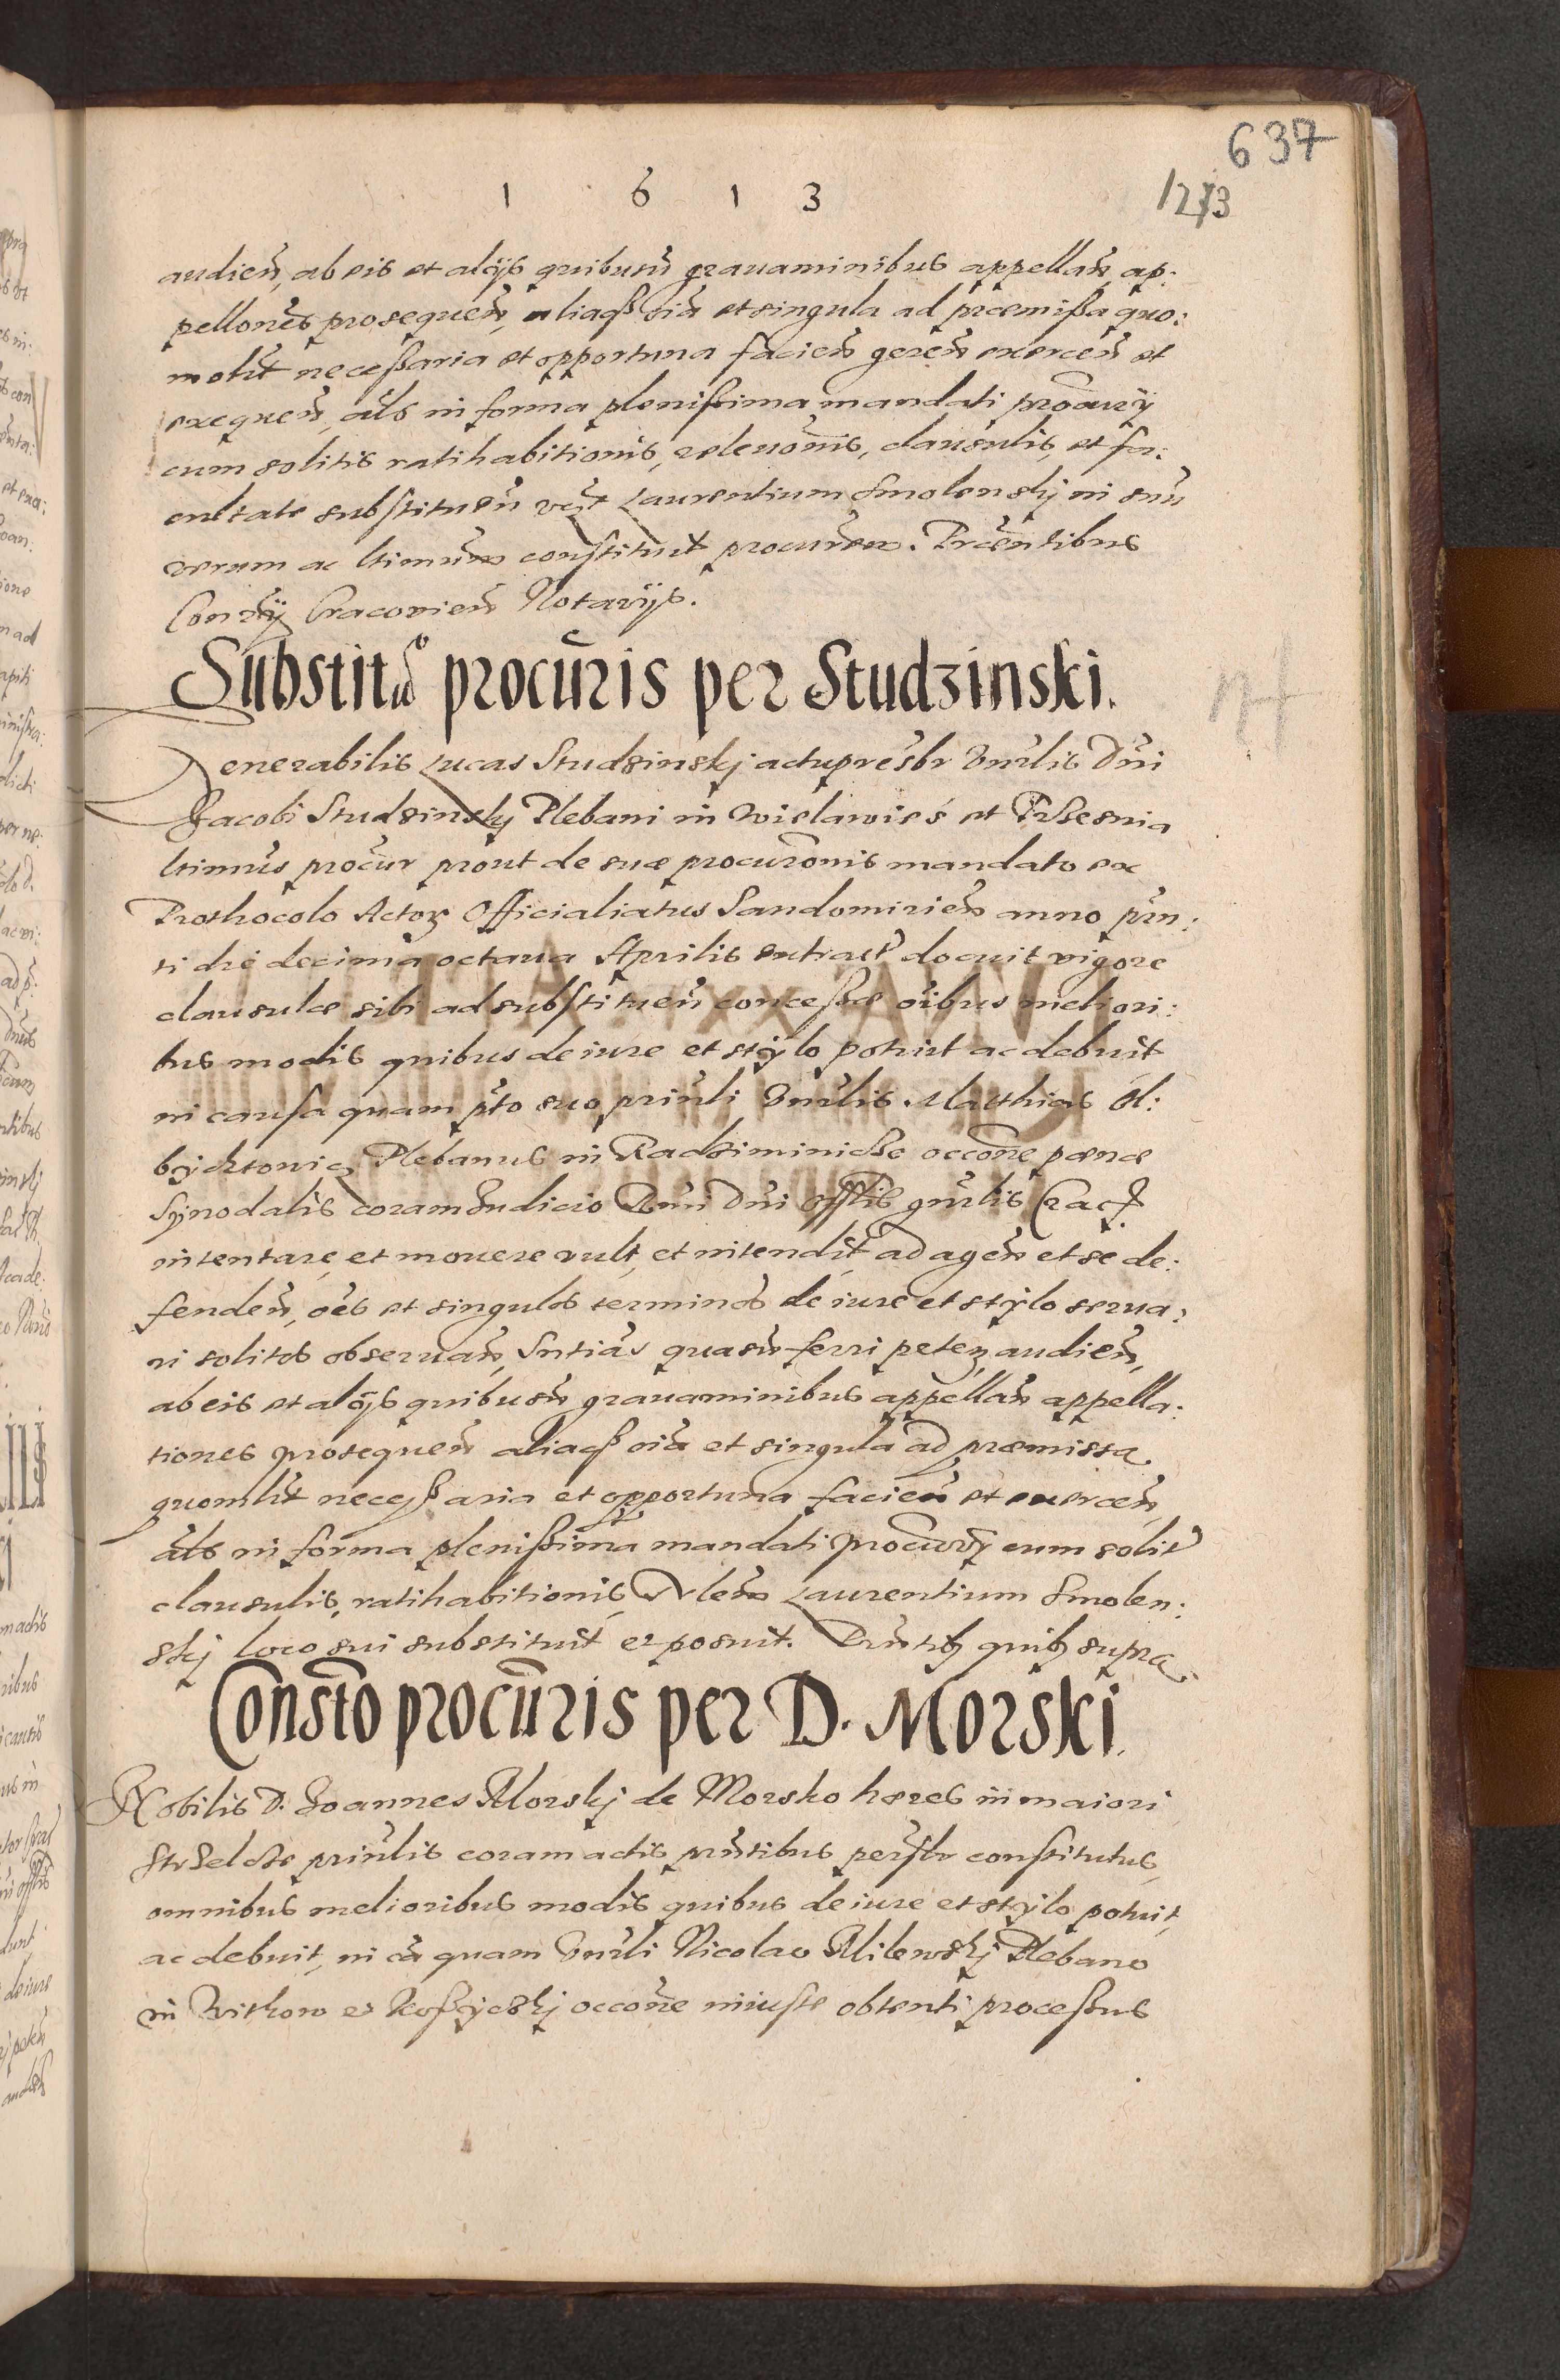 637
1 6 1 3
1273
audien̄, ab eis et alijs quibusn̄ grauaminibus appellan̄, ap:
pellōnes prosequen̄, aliaqß oīa et singula ad præmißa quo:
necessaria et opportuna facien̄ geren̄ exercen̄ et
exequen̄, als̄ in forma plenißima mandati procur̄ij
cum solitis ratihabitionis, releuōnis, clausulis, et fa:
cultate substituen̄ Laurentium Smolenskj in suū
verum ac ltimum̄ constituit procurem̄. Præn̄tibus
Con Cracouien̄ Notarijs.
Substituo procuris per Studzinski.
Venerabilis Lucas Studzinskj actu presbr Vnrlis Dn̄i
Jacobi Studzinskj Plebani in Wielawieś et Trzesnia
ltimus procur prout de suæ procurōnis mandato ex
Prothocolo Actoꝝ Officialiatus Sandomirien̄ anno prn̄:
ti die decima octaua Aprilis extract docuit vigore
clausulæ sibi ad substituen̄ conceßæ oībus meliori:
bus modis quibus de iure et stÿlo potuit ac debuit
in causa quam pto suo prin̄li Vnrlis Matthias Ol:
Plebanus in Radziminicze occōne pænæ
Synodalis coram Judicio Rn̄di Dn̄i Offlis gn̄rlis Crac
intentare, et mouere vult, et intendit, ad agen̄ et se de:
fenden̄, oēs et singulos terminos de iure et stÿlo serua:
ri solitos obseruan̄, Sntiās quasn̄ ferri peten̄ audien̄,
ab eis et alijs quibusn̄ grauaminibus appellan̄ appella:
tiones prosequen̄ aliaqß oīa et singula ad præmissa
quomlt neceßaria et opportuna facien̄ et exercen̄,
als̄ in forma plenißima mandati procur̄ij cum solit
clausulis, ratihabitionis, Laurentium Smolen:
skj loco sui substituit et posuit. Prn̄tibꝫ quibꝫ supra.
Constō procūris per D. Morski.
Nobilis D. Joannes Morskj de Morsko hæres in maiori
Strzelcze prin̄lis coram actis prn̄tibus persr constitutus,
omnibus melioribus modis quibus de iure et stÿlo potuit,
ac debuit, in cā quam Vnrli Nicolao Milewskj Plebano
in Witkow et Koßÿckj occōne iniuste obtenti processus